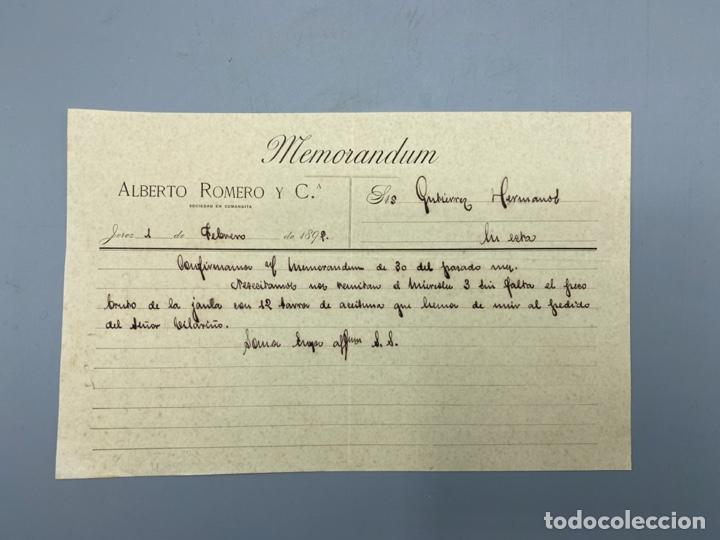 Memorandum
ALBERTO ROMERO Y C.ª
SOCIEDAD EN COMANDITA
Srs Gutiérrez Hermanos
Jerez 1 de Febrero de 1892.
En esta
Confirmamos n/ Memorandum de 30 del pasado mes.
Necesitamos nos remitan el Miercoles 3 sin falta el peso
bruto de la jaula con 12 tarros de aceituna que hemos de unir al pedido
del Señor
Somos suyos affmos S. S.
todocoleccion
todocoleccion.net